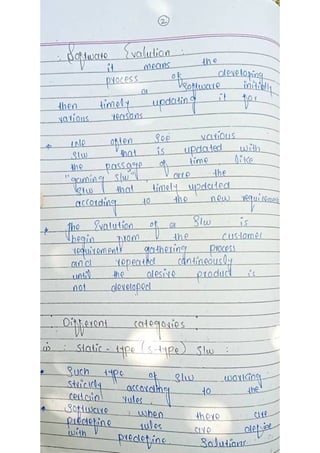 2
: Software Evalution :
it means the
process of developing
a software initially
then timely updating it for
various reasons
* we often see various
s/w that is updated with
the passage of time like
"gaming s/w", are the
s/w that timely updated
according to the new requirements
* the Evalution of a s/w is
begin from the customer
requirement gathering process
and repeated contineously
until the desire product is
not developed
: Different categories :
: Static-type (s-type) s/w :
• Such type of s/w working
strictly according to the
certain rules.
• Software, when there are
predefine rules are define
with predefine Solutions.